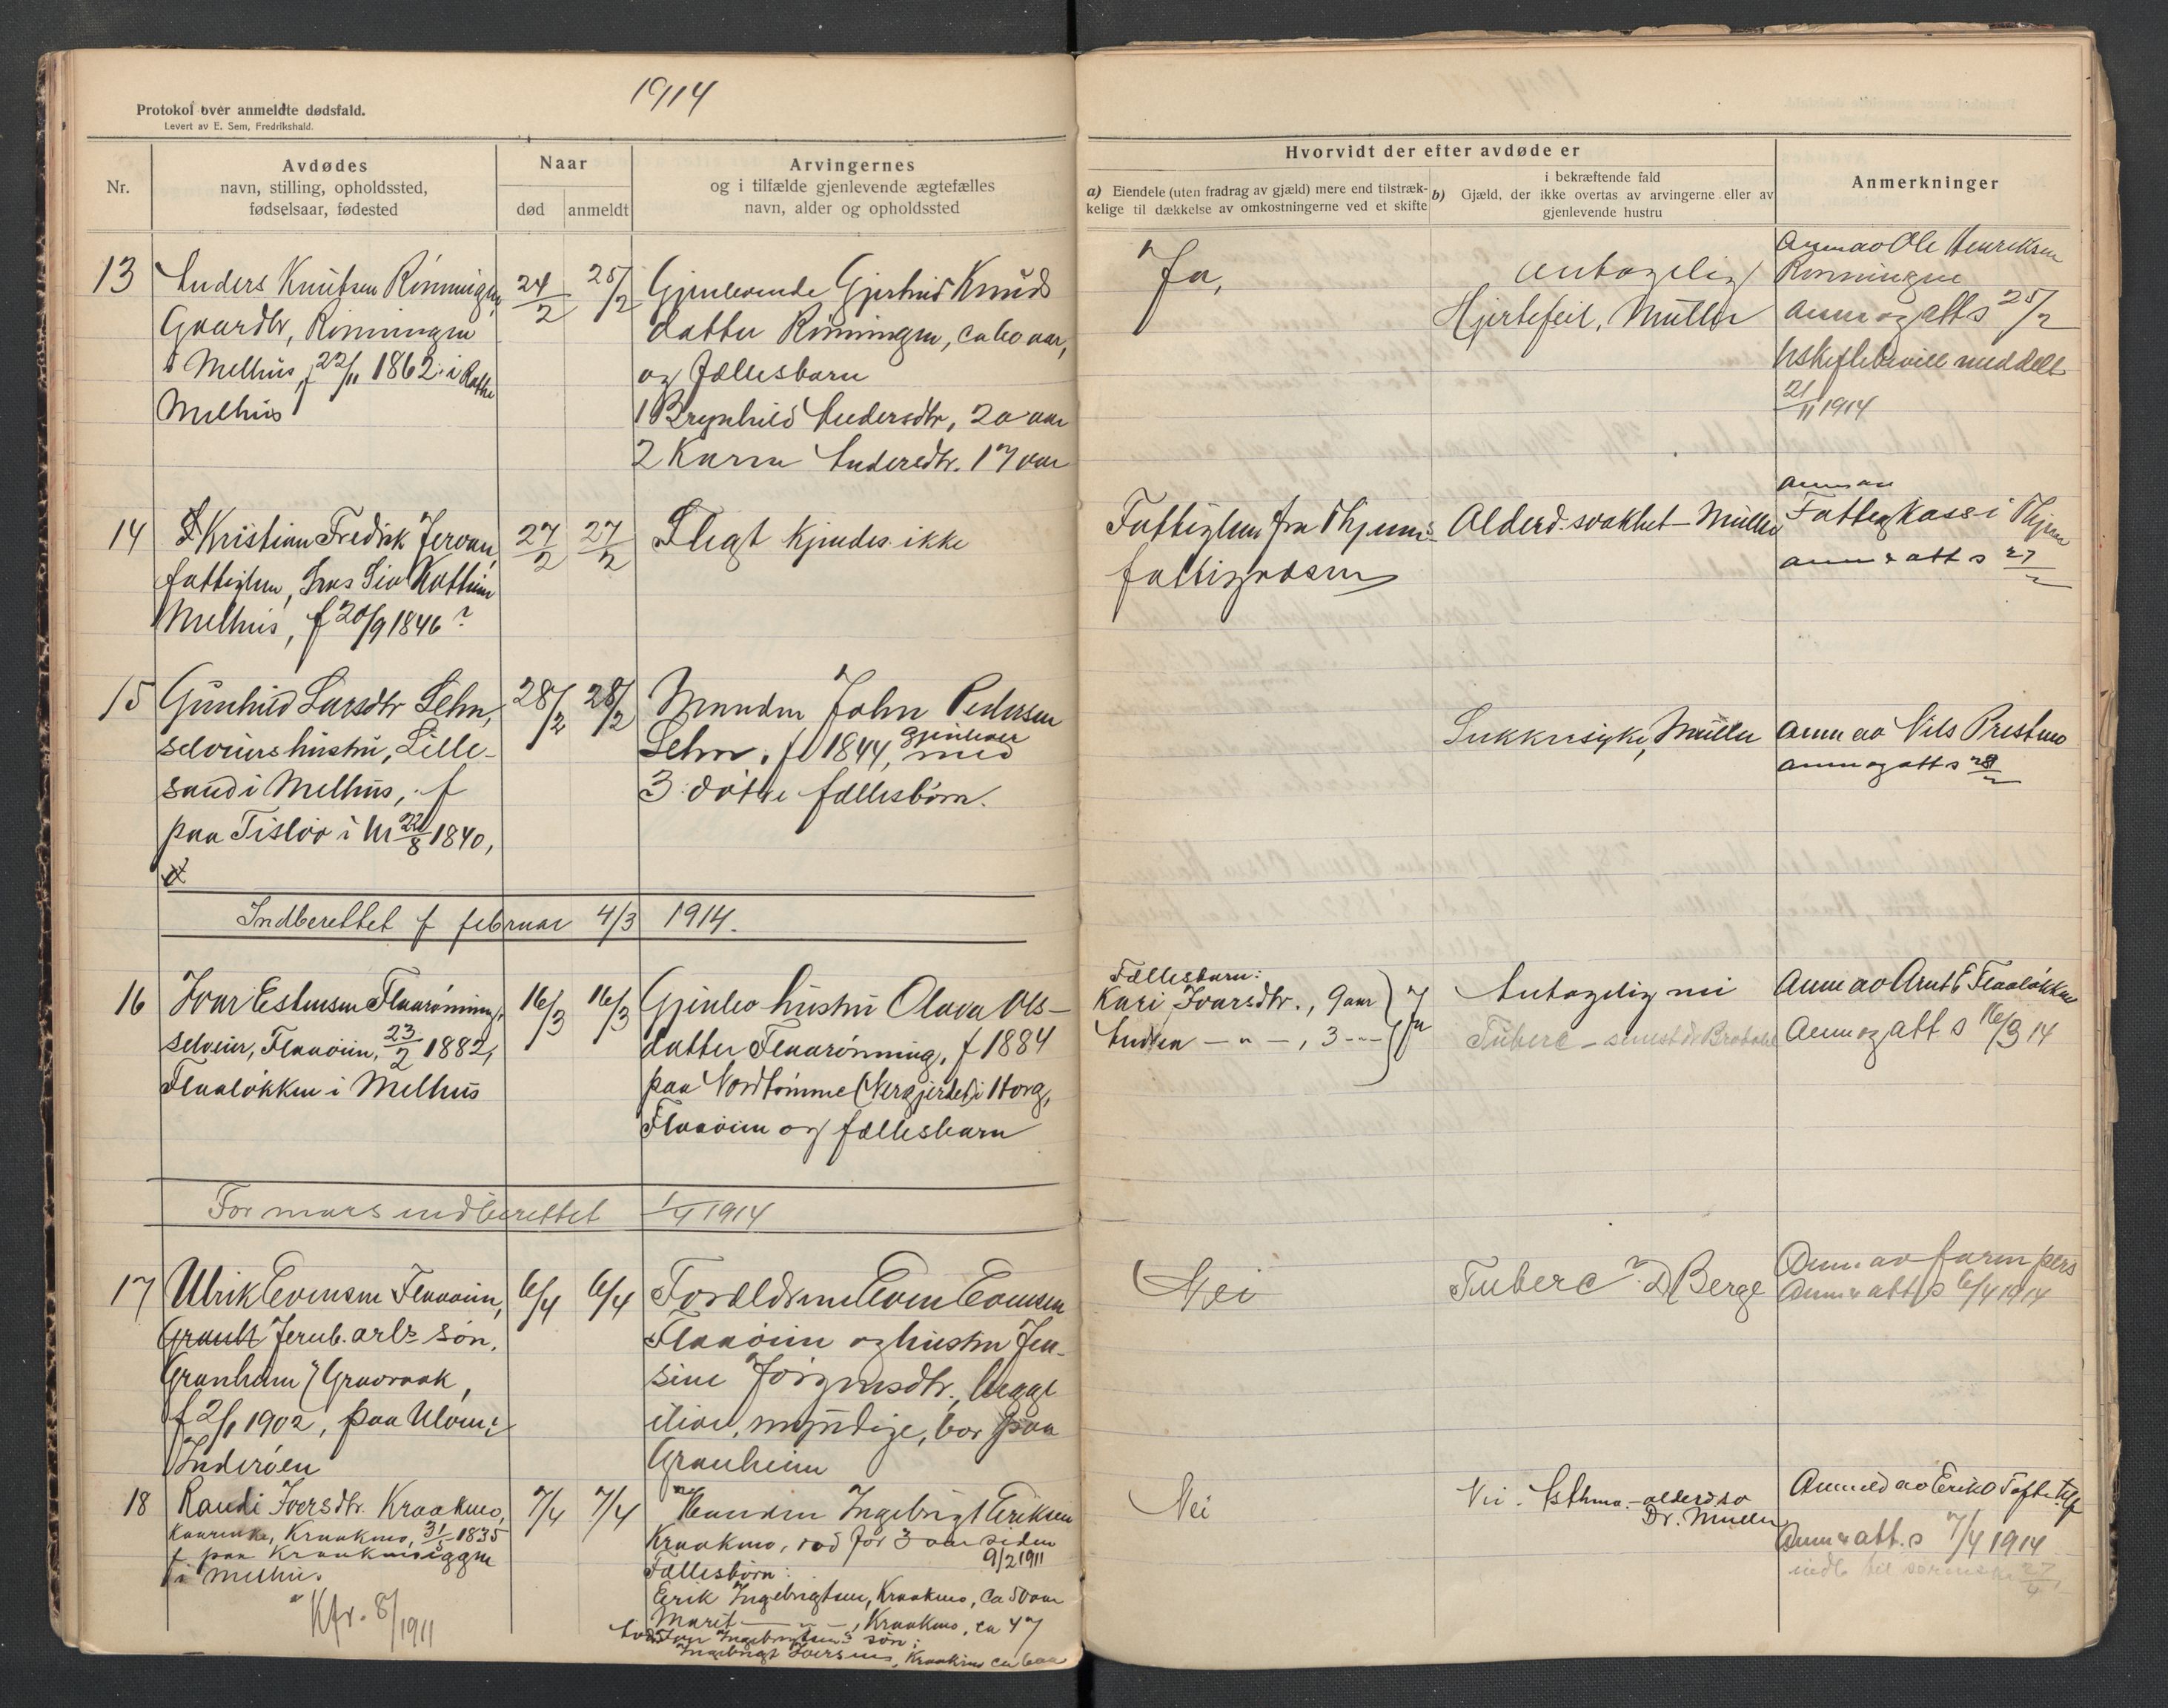 1914
Protokol over anmeldte dødsfald.
Levert av E. Sem, Fredrikshald.
Nr.
Avdødes
navn, stilling, opholdssted,
fødselsaar, fødested
Naar
død
anmeldt
Arvingernes
og i tilfælde gjenlevende ægtefælles
navn, alder og opholdssted
Hvorvidt der efter avdøde er
a) Eiendele (uten fradrag av gjæld) mere end tilstræk-
kelige til dækkelse av omkostningerne ved et skifte
i bekræftende fald
b) Gjæld, der ikke overtas av arvingerne eller av
gjenlevende hustru
Anmerkninger
13
Anders Knutsen Rönningen
Gaardbr, Rönningen
i Melhus, f 22/11 1862 i
Melhus
24/2
25/2
Gjenlevende Gjertrud Knuds
datter Rönningen, ca 60 aar,
og fællesbarn
1 Brynhild Andersdtr, 20 aar
2 Karen Andersdtr. 17 aar
Ja,
antagelig
Hjertefeil, Müller
Anm av Ole Henriksen
Rönningen
Anm og att s 25/2
uskiftebevill meddelt
21/11 1914
14
Kristian Fredrik Jervan,
fattiglem, hos Siv Kattem
Melhus, f 20/9 1846?
27/2
27/2
Slegt kjendes ikke
Fattiglem fra Thjems
fattigvæsen
Alderd. svakhet - Müller
Anm av
Fattigkass i Thjem
anm & att s 27/2
15
Gunhild Larsdtr Sehm,
selveiers hustru, Lille-
sand i Melhus, f
paa Tislöv i M 22/8 1840,
28/2
28/2
Manden John Pedersen
Sehm, f 1844, gjenlever
med
3 dötre fællesbörn.
Sukkersyke, Müller
Anm av Nils Prestmo
anm og att s 28/2
Indberettet f februar 4/3 1914.
16
Ivar Estensen Flaarönning,
selveier, Flaaöien, 23/2 1882,
Flaalökken i Melhus
16/3
16/3
Gjenlev hustru Olava Ols-
datter Flaarönning, f 1884
paa Nordtömme (Nergjerdet) i Horg,
Flaaöien og fællesbarn
Fællesbarn:
Kari Ivarsdtr., 9 aar
Andrea - " - , 3 - " -
Ja
Antagelig nei
Tuberc - senest dr
Anm av Arnt E Flaalökken
Anm og att. s 16/3 14
For mars indberettet 1/4 1914
17
Ulrik Evensen Flaaöien,
Jernb. arb's sön,
Granheim i Gravraak,
f 2/1 1902, paa Ulven i
Inderöen
6/4
6/4
Forældrene Even Evensen
Flaaöien og hustru Jen-
sine Jörgensdtr., begge
ilive, myndige, bor paa
Granheim
Nei
Tuberc? D Berge
Anm av faren pers
Anm & att s 6/4 1914
18
Randi Iversdtr. Kraakmo,
kaarenke, Kraakmo, 31/5 1835
f paa Kraakmoiggen
i Melhus.
Kfr. 8/1911
7/4
7/4
Manden Ingebrigt Eriksen
Kraakmo, död for 3 aar siden
9/2 1911
Fællesbörn:
Erik Ingebrigtsen, Kraakmo, ca 50 aar
Marit - " - , Kraakmo, ca 47
Ingebrigtsens sön:
Ingebrigt Iversen, Kraakmo ca 6 aar
Nei
Nei. Asthma - alderd.sv
Dr. Müller
Anmeld av Erik O Tofte
Anm & att. s 7/4 1914
indb til 27/4